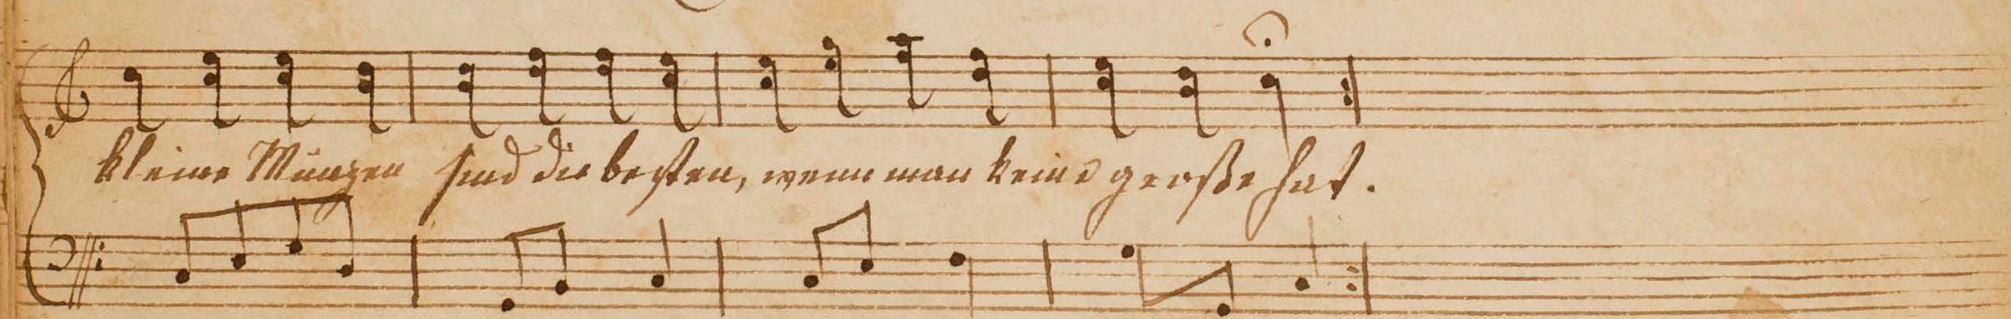 kleine Münzen sind die besten, wenn man keine große hat.